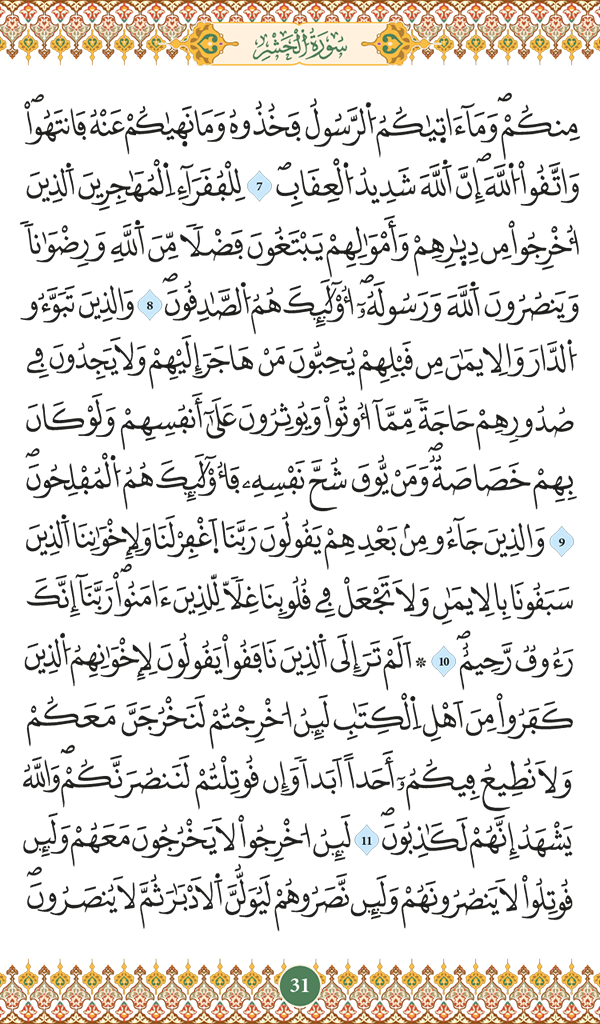 سُورَةُ الْحَشْرِ
مِنكُمْۖ وَمَآ ءَاتٜيٰكُمُ اُ۬لرَّسُولُ فَخُذُوهُ وَمَا نَهٜيٰكُمْ عَنْهُ فَانتَهُواْۖ
وَاتَّقُواْ اُ۬للَّهَۖ إِنَّ اَ۬للَّهَ شَدِيدُ اُ۬لْعِقَابِۖ 7 لِلْفُقَرَآءِ اِ۬لْمُهَٰجِرِينَ اَ۬لذِينَ
أُخْرِجُواْ مِن دِيٰ۪رِهِمْ وَأَمْوَٰلِهِمْ يَبْتَغُونَ فَضْلاٗ مِّنَ اَ۬للَّهِ وَرِضْوَٰناٗ
وَيَنصُرُونَ اَ۬للَّهَ وَرَسُولَهُۥٓۖ أُوْلَٰٓئِكَ هُمُ اُ۬لصَّٰدِقُونَۖ 8 وَالذِينَ تَبَوَّءُو
اُ۬لدَّارَ وَالِايمَٰنَ مِن قَبْلِهِمْ يُحِبُّونَ مَنْ هَاجَرَ إِلَيْهِمْ وَلَا يَجِدُونَ فِے
صُدُورِهِمْ حَاجَةٗ مِّمَّآ أُوتُواْ وَيُوثِرُونَ عَلَىٰٓ أَنفُسِهِمْ وَلَوْ كَانَ
بِهِمْ خَصَاصَةٞۖ وَمَنْ يُّوقَ شُحَّ نَفْسِهِۦ فَأُوْلَٰٓئِكَ هُمُ اُ۬لْمُفْلِحُونَۖ
9 وَالذِينَ جَآءُو مِنۢ بَعْدِهِمْ يَقُولُونَ رَبَّنَا اَ۪غْفِرْ لَنَا وَلِإِخْوَٰنِنَا اَ۬لذِينَ
سَبَقُونَا بِالِايمَٰنِ وَلَا تَجْعَلْ فِے قُلُوبِنَا غِلّاٗ لِّلذِينَ ءَامَنُواْۖ رَبَّنَآ إِنَّكَ
رَءُوفٞ رَّحِيمٌۖ 10 ۞ اَلَمْ تَرَ إِلَى اَ۬لذِينَ نَافَقُواْ يَقُولُونَ لِإِخْوَٰنِهِمُ اُ۬لذِينَ
كَفَرُواْ مِنَ اَهْلِ اِ۬لْكِتَٰبِ لَئِنُ ا۟خْرِجْتُمْ لَنَخْرُجَنَّ مَعَكُمْ
وَلَا نُطِيعُ فِيكُمُۥٓ أَحَداً اَبَداٗ وَإِن قُوتِلْتُمْ لَنَنصُرَنَّكُمْۖ وَاللَّهُ
يَشْهَدُ إِنَّهُمْ لَكَٰذِبُونَۖ 11 لَئِنُ ا۟خْرِجُواْ لَا يَخْرُجُونَ مَعَهُمْ وَلَئِن
قُوتِلُواْ لَا يَنصُرُونَهُمْ وَلَئِن نَّصَرُوهُمْ لَيُوَلُّنَّ اَ۬لَادْبَٰرَ ثُمَّ لَا يُنصَرُونَۖ
31